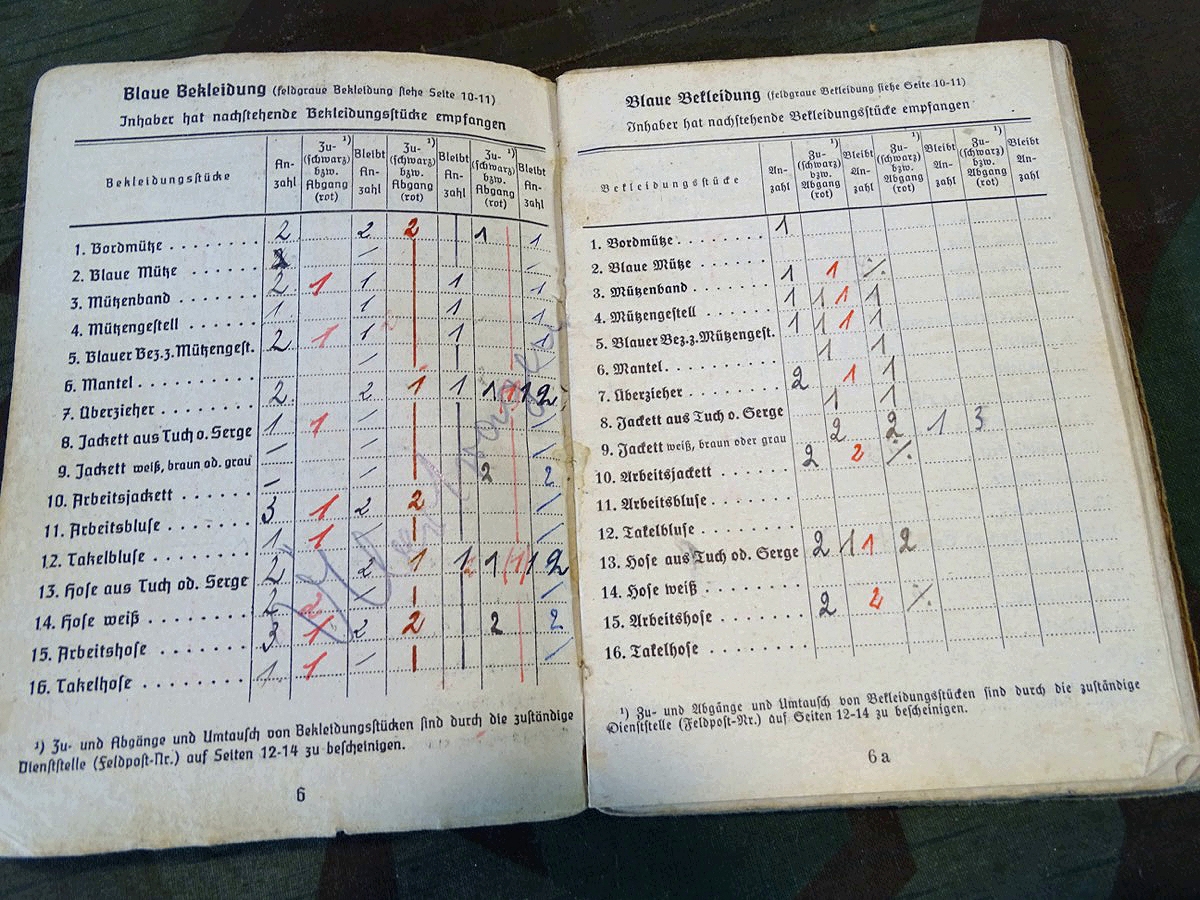 Blaue Bekleidung (feldgraue Bekleidung siehe Seite 10-11)
Inhaber hat nachstehende Bekleidungsstücke empfangen
Bekleidungsstücke
An-
zahl
Zu- ¹)
(schwarz)
bzw.
Abgang
(rot)
Bleibt
An-
zahl
Zu- ¹)
(schwarz)
bzw.
Abgang
(rot)
Bleibt
An-
zahl
Zu- ¹)
(schwarz)
bzw.
Abgang
(rot)
Bleibt
An-
zahl
1. Bordmütze . . . . . . . . . 2 2 2 1 1
2. Blaue Mütze . . . . . . . /
3. Mützenband . . . . . . . . 2 1 1 1 1
4. Mützengestell . . . . . . . 1 1 1 1
5. Blauer Bez. z. Mützengest. 2 1 1 1 1
6. Mantel . . . . . . . . . . . /
7. Überzieher . . . . . . . . 2 2 1 1 1 1 2
8. Jackett aus Tuch o. Serge 1 1 /
9. Jackett weiß, braun od. grau – /
10. Arbeitsjackett . . . . . . – / 2 2
11. Arbeitsbluse . . . . . . . 3 1 2 2 /
12. Takelbluse . . . . . . . . 1 1 / /
13. Hose aus Tuch od. Serge 2 2 1 1 1 (1) 1 2
14. Hose weiß . . . . . . . . 2 2 / /
15. Arbeitshose . . . . . . . 3 1 2 2 2 2
16. Takelhose . . . . . . . . 1 1 / /
¹) Zu- und Abgänge und Umtausch von Bekleidungsstücken sind durch die zuständige
Dienststelle (Feldpost-Nr.) auf Seiten 12-14 zu bescheinigen.
6
Blaue Bekleidung (feldgraue Bekleidung siehe Seite 10-11)
Inhaber hat nachstehende Bekleidungsstücke empfangen
Bekleidungsstücke
An-
zahl
Zu- ¹)
(schwarz)
bzw.
Abgang
(rot)
Bleibt
An-
zahl
Zu- ¹)
(schwarz)
bzw.
Abgang
(rot)
Bleibt
An-
zahl
Zu- ¹)
(schwarz)
bzw.
Abgang
(rot)
Bleibt
An-
zahl
1. Bordmütze . . . . . . . . . 1
2. Blaue Mütze . . . . . . . 1 1 ⁒
3. Mützenband . . . . . . . . 1 1 1 1
4. Mützengestell . . . . . . . 1 1 1 1
5. Blauer Bez. z. Mützengest. 1 1
6. Mantel . . . . . . . . . . . 2 1 1
7. Überzieher . . . . . . . . 1 1
8. Jackett aus Tuch o. Serge 2 2 1 3
9. Jackett weiß, braun oder grau 2 2 ⁒
10. Arbeitsjackett . . . . . . .
11. Arbeitsbluse . . . . . . . .
12. Takelbluse . . . . . . . . .
13. Hose aus Tuch od. Serge 2 1 1 2
14. Hose weiß . . . . . . . . .
15. Arbeitshose . . . . . . . . 2 2 ⁒
16. Takelhose . . . . . . . . .
¹) Zu- und Abgänge und Umtausch von Bekleidungsstücken sind durch die zuständige
Dienststelle (Feldpost-Nr.) auf Seiten 12-14 zu bescheinigen.
6 a